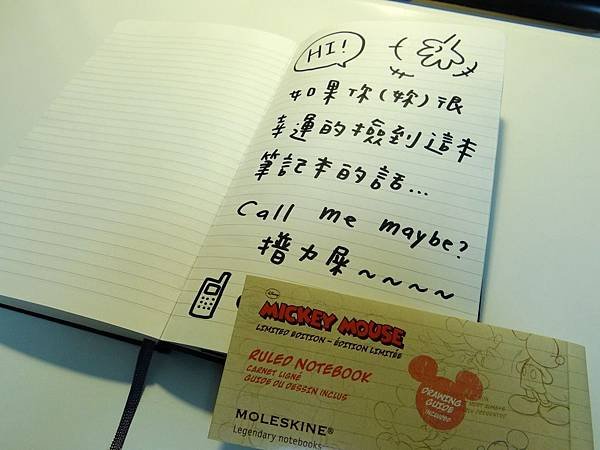 HI!
如果你(妳)很
幸運的撿到這本
筆記本的話...
Call me maybe?
力屎~~~~
Disney
MICKEY MOUSE
LIMITED EDITION – ÉDITION LIMITÉE
RULED NOTEBOOK
CARNET LIGNÉ
GUIDE DU DESSIN INCLUS
DRAWING
GUIDE
INCLUDED
MOLESKINE®
Legendary notebooks